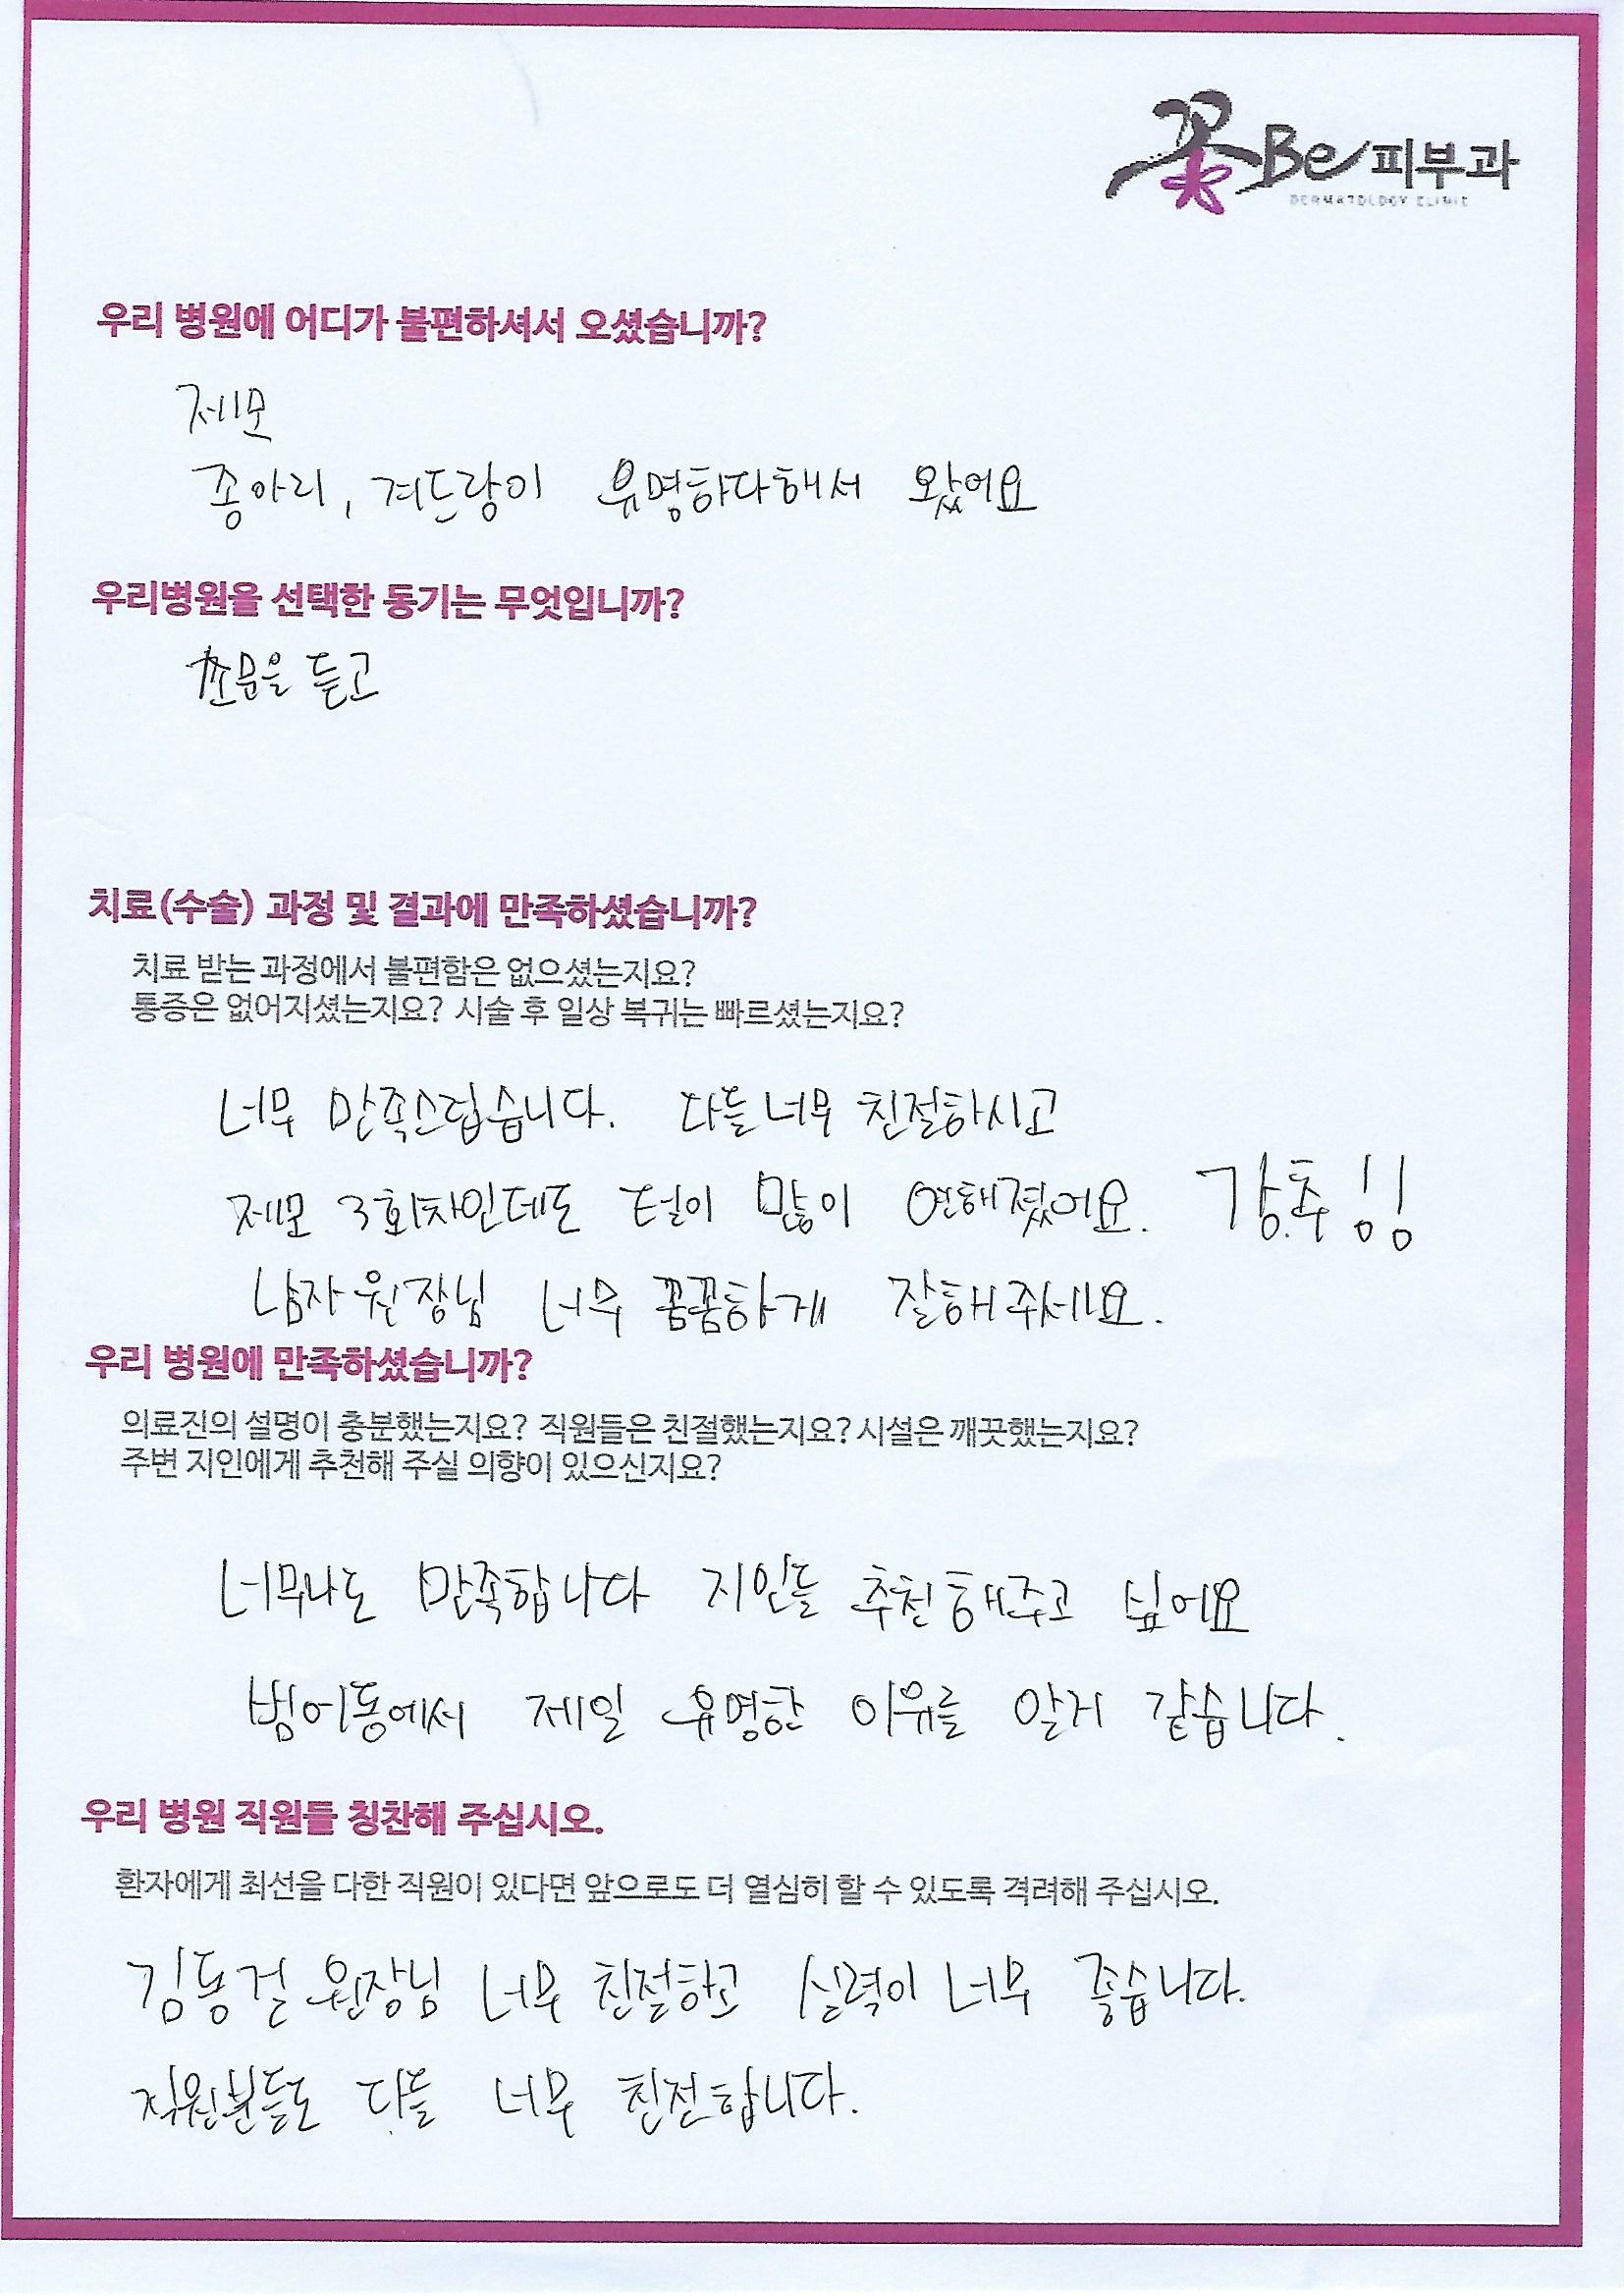 꽃Be피부과
DERMATOLOGY CLINIC
우리 병원에 어디가 불편하셔서 오셨습니까?
제모
종아리, 겨드랑이 유명하다해서 왔어요
우리병원을 선택한 동기는 무엇입니까?
소문을 듣고
치료(수술) 과정 및 결과에 만족하셨습니까?
치료 받는 과정에서 불편함은 없으셨는지요?
통증은 없어지셨는지요? 시술 후 일상 복귀는 빠르셨는지요?
너무 만족스럽습니다. 다들 너무 친절하시고
제모 3회차인데도 털이 많이 연해졌어요. 강추!!
남자 원장님 너무 꼼꼼하게 잘해주세요.
우리 병원에 만족하셨습니까?
의료진의 설명이 충분했는지요? 직원들은 친절했는지요? 시설은 깨끗했는지요?
주변 지인에게 추천해 주실 의향이 있으신지요?
너무나도 만족합니다 지인들 추천해주고 싶어요
범어동에서 제일 유명한 이유를 알거 같습니다.
우리 병원 직원들 칭찬해 주십시오.
환자에게 최선을 다한 직원이 있다면 앞으로도 더 열심히 할 수 있도록 격려해 주십시오.
김동걸 원장님 너무 친절하고 실력이 너무 좋습니다.
직원분들도 다들 너무 친절합니다.